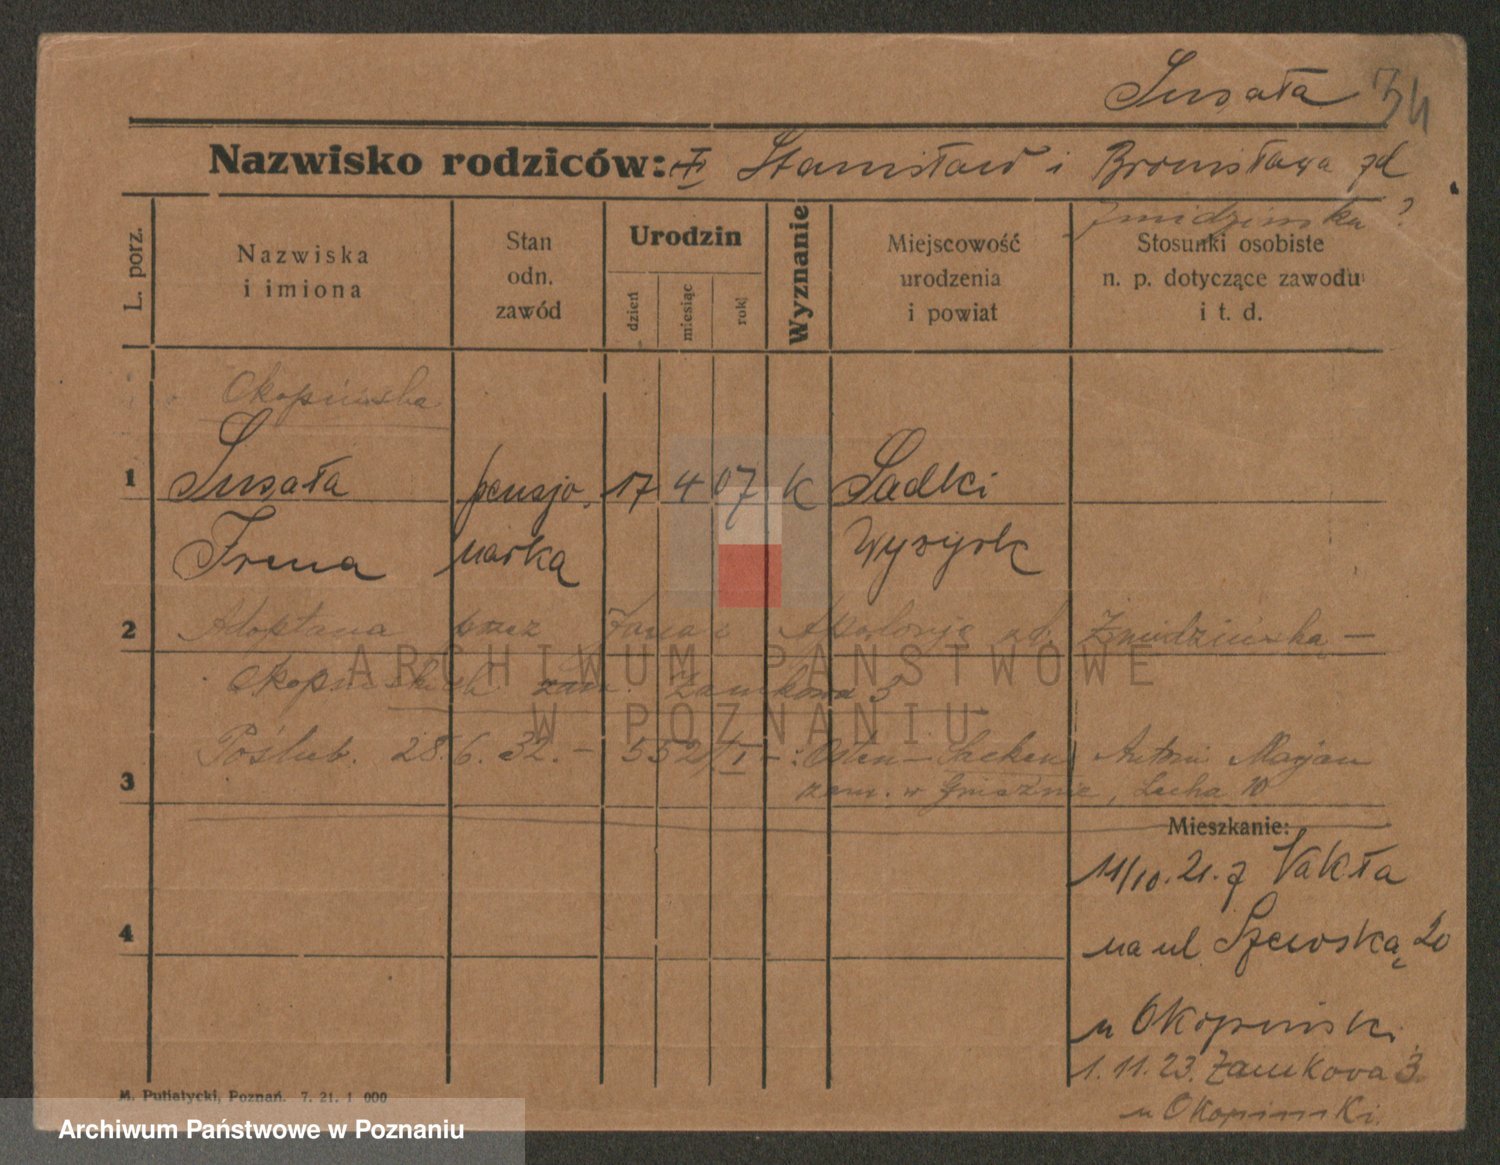 Susała 34
Nazwisko rodziców: Stanisław i Bronisława zd
Żmidzinska ?
L. porz.
Nazwiska
i imiona
Stan
odn.
zawód
Urodzin
dzień
miesiąc
rok
Wyznanie
Miejscowość
urodzenia
i powiat
Stosunki osobiste
n. p. dotyczące zawodu
i t. d.
Okopińska
1 Susała pensjo- 17 4 07 K Sadki
Irena narka Wyrzysk
2 Adoptana przez Jana i zd. Żmudzińska —
Okopińskich zam. Zamkowa 5
Poślub. 28.6.32. — 552/ I — : Osten-Sacken Antoni Marjan
3 zam. w Gnieźnie, Lecha 10
Mieszkanie:
11/10.21. z Vakła
4 na ul Szewską 20
u Okopinski
1.11.23. Zamkova 3.
u Okopinski.
M. Putiatycki, Poznań. 7. 21. 1 000
ARCHIWUM PAŃSTWOWE
W POZNANIU
Archiwum Państwowe w Poznaniu